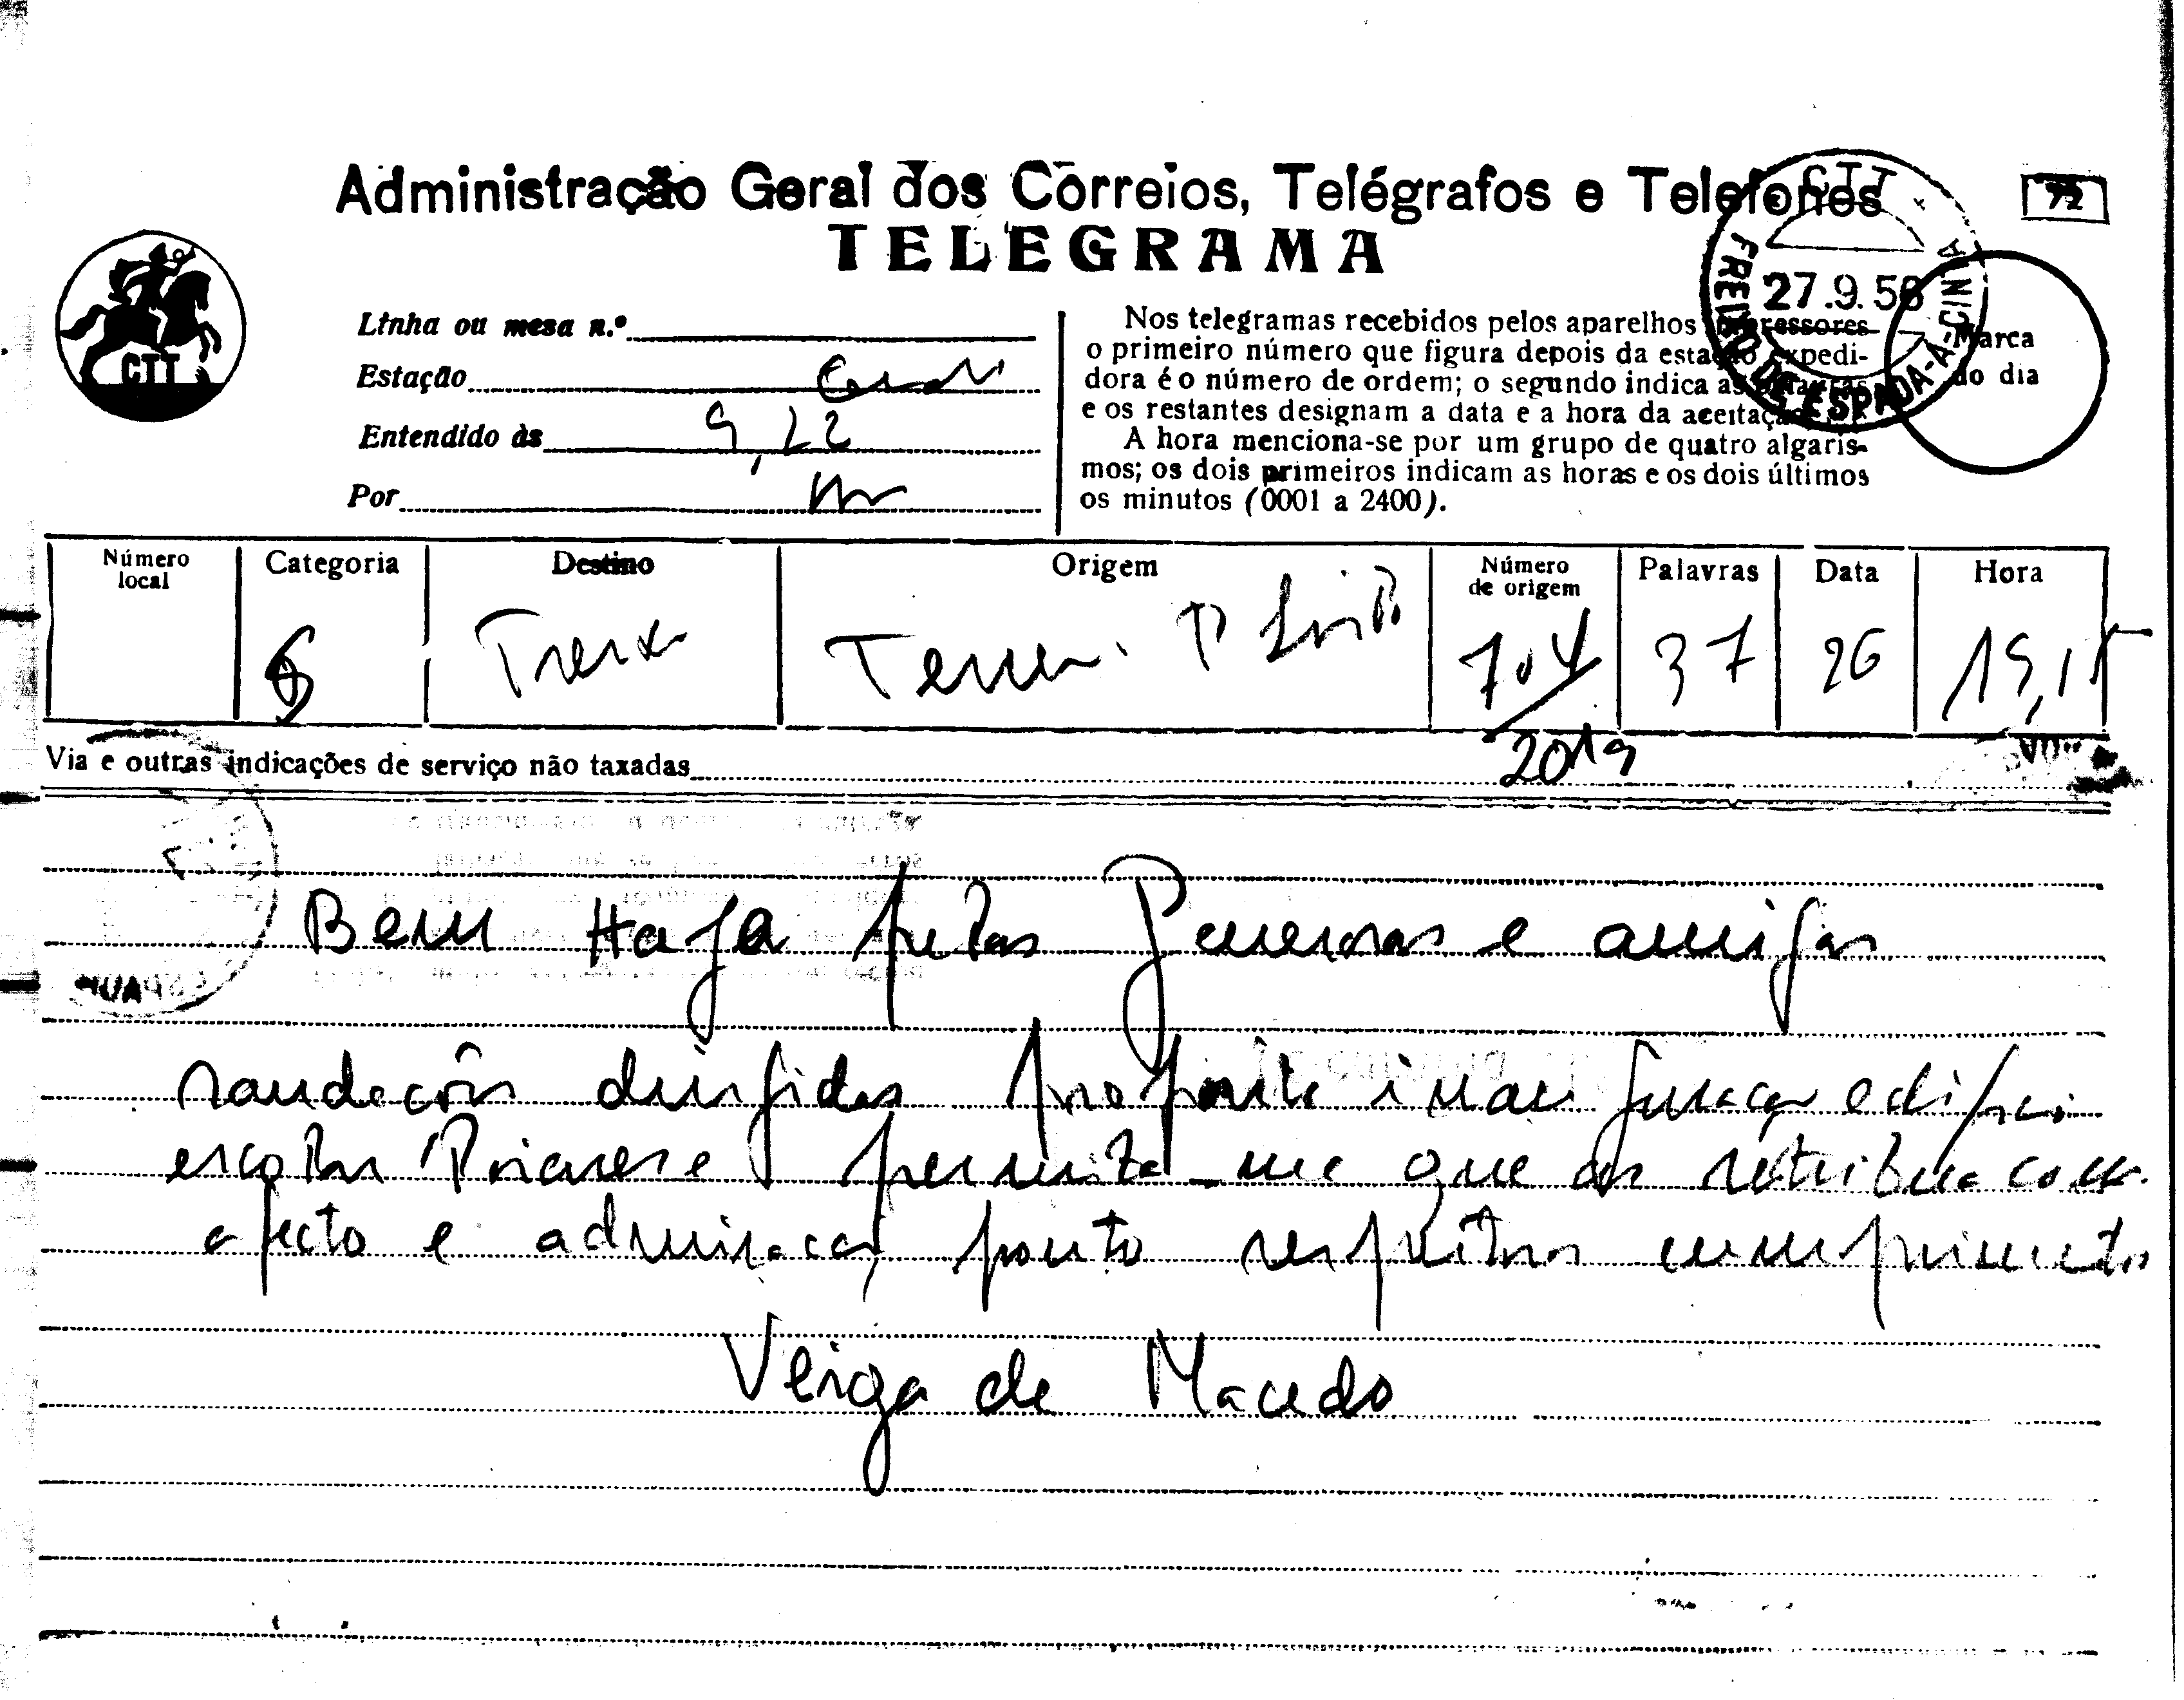 Administração Geral dos Correios, Telégrafos e Telefones
72
TELEGRAMA
CTT
27.9.56
FREIXO DE ESPADA-A-CINTA
CTT
Marca do dia
Linha ou mesa n.º
Estação
Entendido às 9,22
Por
Nos telegramas recebidos pelos aparelhos impressores
o primeiro número que figura depois da estação expedi-
dora é o número de ordem; o segundo indica as palavras
e os restantes designam a data e a hora da aceitação
A hora menciona-se por um grupo de quatro algaris-
mos; os dois primeiros indicam as horas e os dois últimos
os minutos (0001 a 2400).
Número local Categoria Destino Origem Número de origem Palavras Data Hora
704 37 26 19,15
2019
Via e outras indicações de serviço não taxadas
Bem Haja pelas generosas e amigas
saudacões dirigidas proposito inauguracao edificio
escolar permita-me que as retribua com
afecto e admiracao ponto respeitosos cumprimentos
Veiga de Macedo